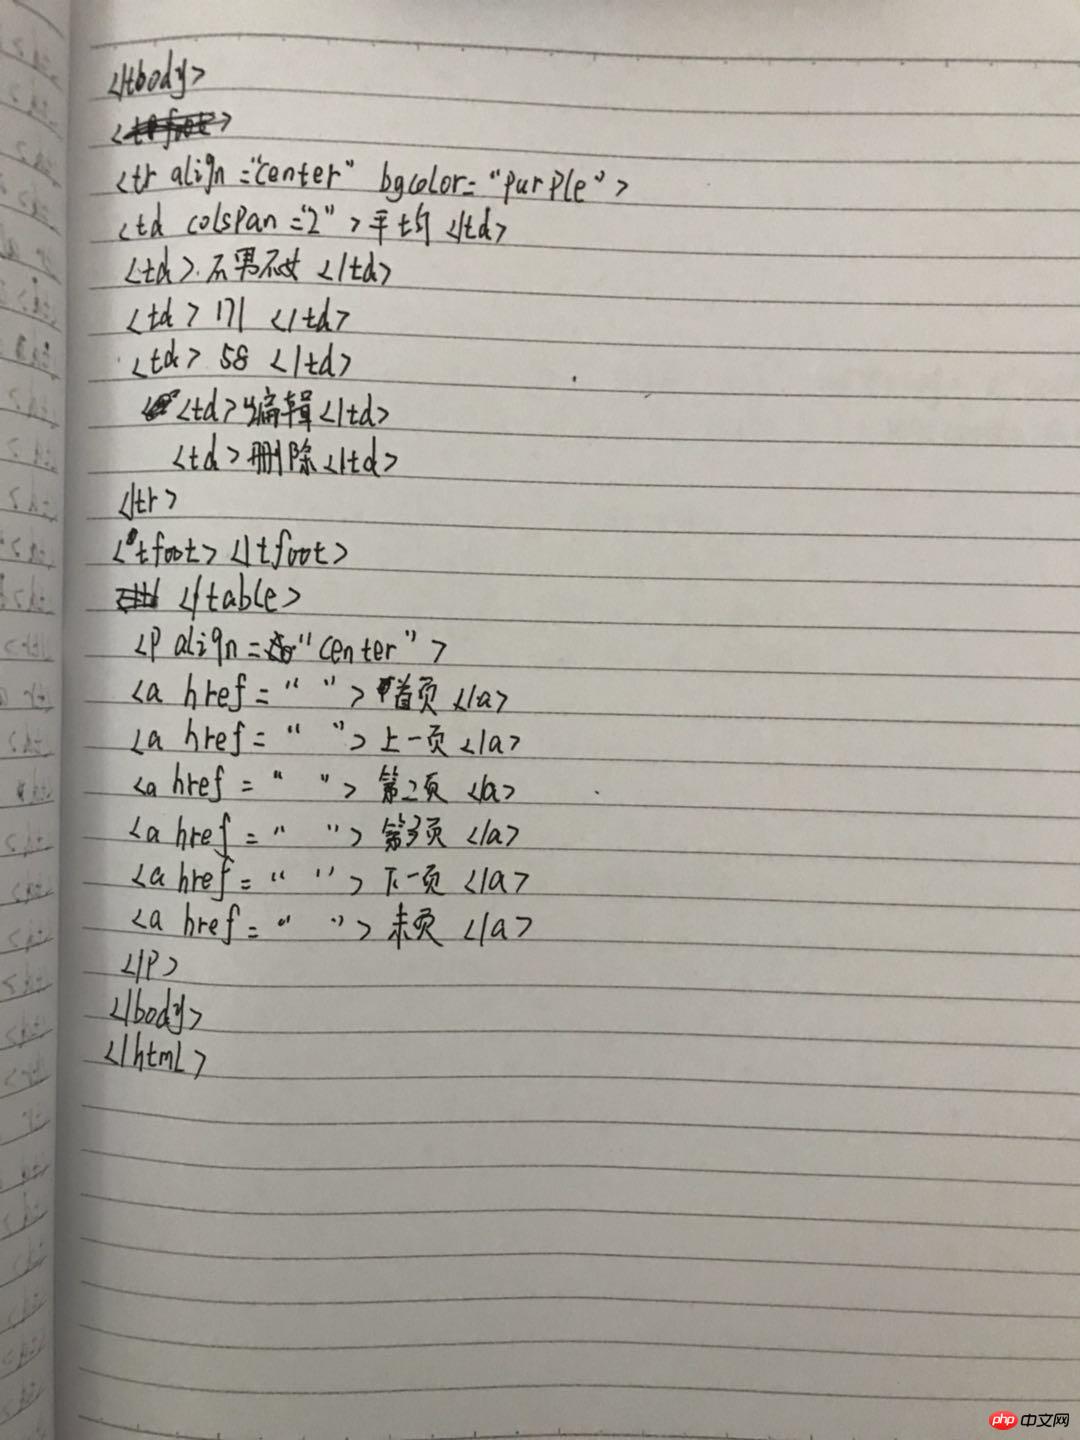 </tbody>
<tr align="center" bgcolor="purple">
<td colspan="2">平均</td>
<td>不男不女</td>
<td>171</td>
<td>58</td>
<td>编辑</td>
<td>删除</td>
</tr>
<tfoot></tfoot>
</table>
<p align="center">
<a href=" ">首页</a>
<a href=" ">上一页</a>
<a href=" ">第2页</a>
<a href=" ">第3页</a>
<a href=" ">下一页</a>
<a href=" ">末页</a>
</p>
</body>
</html>
php中文网